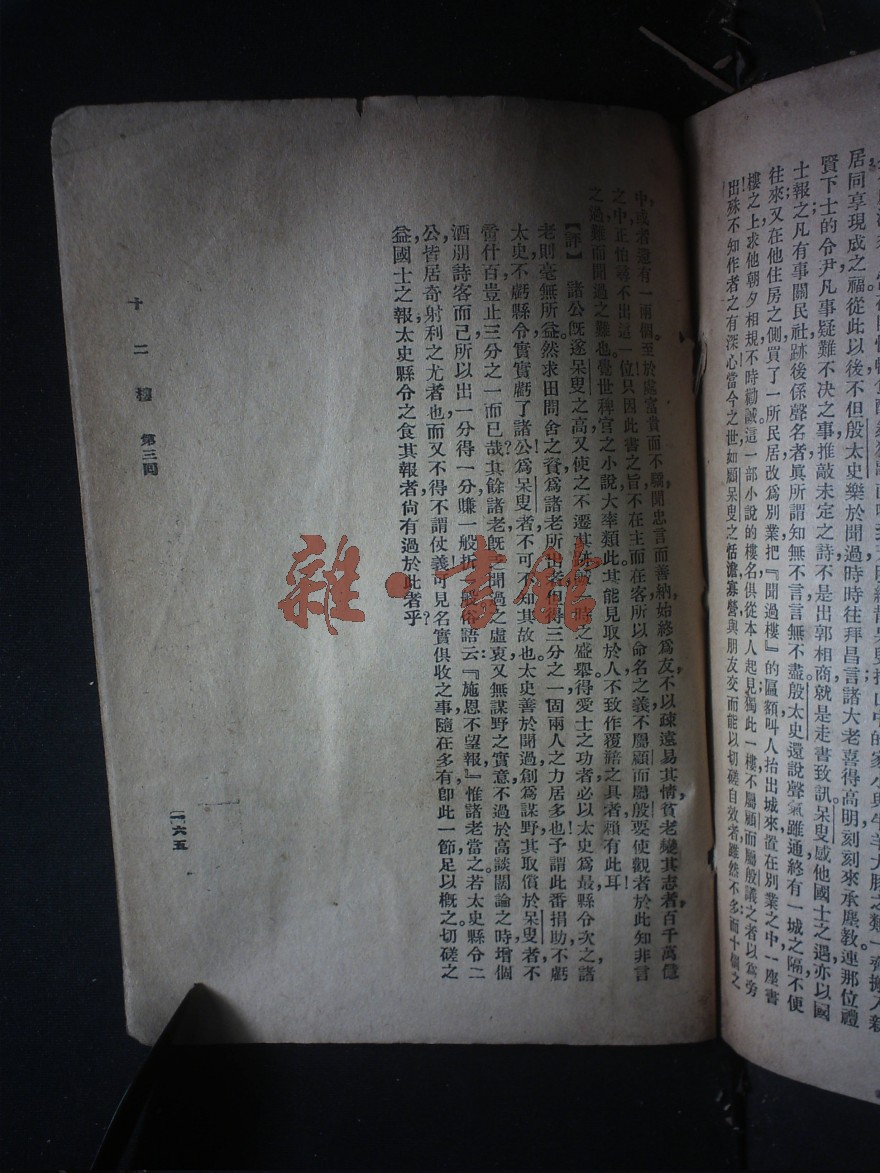 居同享現成之福從此以後不但殷太史樂於聞過時時往拜昌言諸大老喜得高朋刻刻來承麈教連那位禮
賢下士的令尹凡事疑難不決之事推敲未定之詩不是出郭相商就是走書致訊呆叟感他國士之遇亦以國
士報之凡有事關民社跡後係聲名者眞所謂知無不言言無不盡殷太史還說聲氣雖通終有一城之隔不便
往來又在他住房之側買了一所民居改爲別業把『聞過樓』的匾額叫人抬出城來置在別業之中一座書
樓之上求他朝夕相規不時勸誡這一部小說的樓名俱從本人起見獨此一樓不屬顧而屬殷議之者以爲旁
出殊不知作者之有深心當今之世如顧呆叟之恬澹寡營與朋友交而能以切磋自效者雖然不多而十個之
中或者還有一兩個至於處富貴而不驕聞忠言而善納始終爲友不以疎遠易其情貧老變其志者百千萬億
之中正怕尋不出這一位只因此書之旨不在主而在客所以命名之義不屬顧而屬殷要使觀者於此知非言
之過難而聞過之難也覺世稗官之小說大率類此其能見取於人不致作覆瓿之具者賴有此耳
【評】諸公旣遂呆叟之高又使之不遷其跡誠一時之盛舉得愛士之功者必以太史爲最縣令次之諸
老則毫無所益然求田問舍之資爲諸老所出者但得三分之一固兩人之力居多也予謂此番捐助不虧
太史不虧縣令實實虧了諸公爲呆叟者不可不知其故也太史善於聞過創爲謀野其取償於呆叟者不
啻什百豈止三分之一而已哉其餘諸老旣無聞過之虛衷又無謀野之實意不過於高談闊論之時增個
酒朋詩客而已所以出一分得一分賺一般折一般俗語云『施恩不望報』惟諸老當之若太史縣令二
公皆居奇射利之尤者也而又不得不謂仗義可見名實俱收之事隨在多有卽此一節足以槪之切磋之
益國士之報太史縣令之食其報者尙有過於此者乎？
十二樓 第三回
一六五
雜·書館